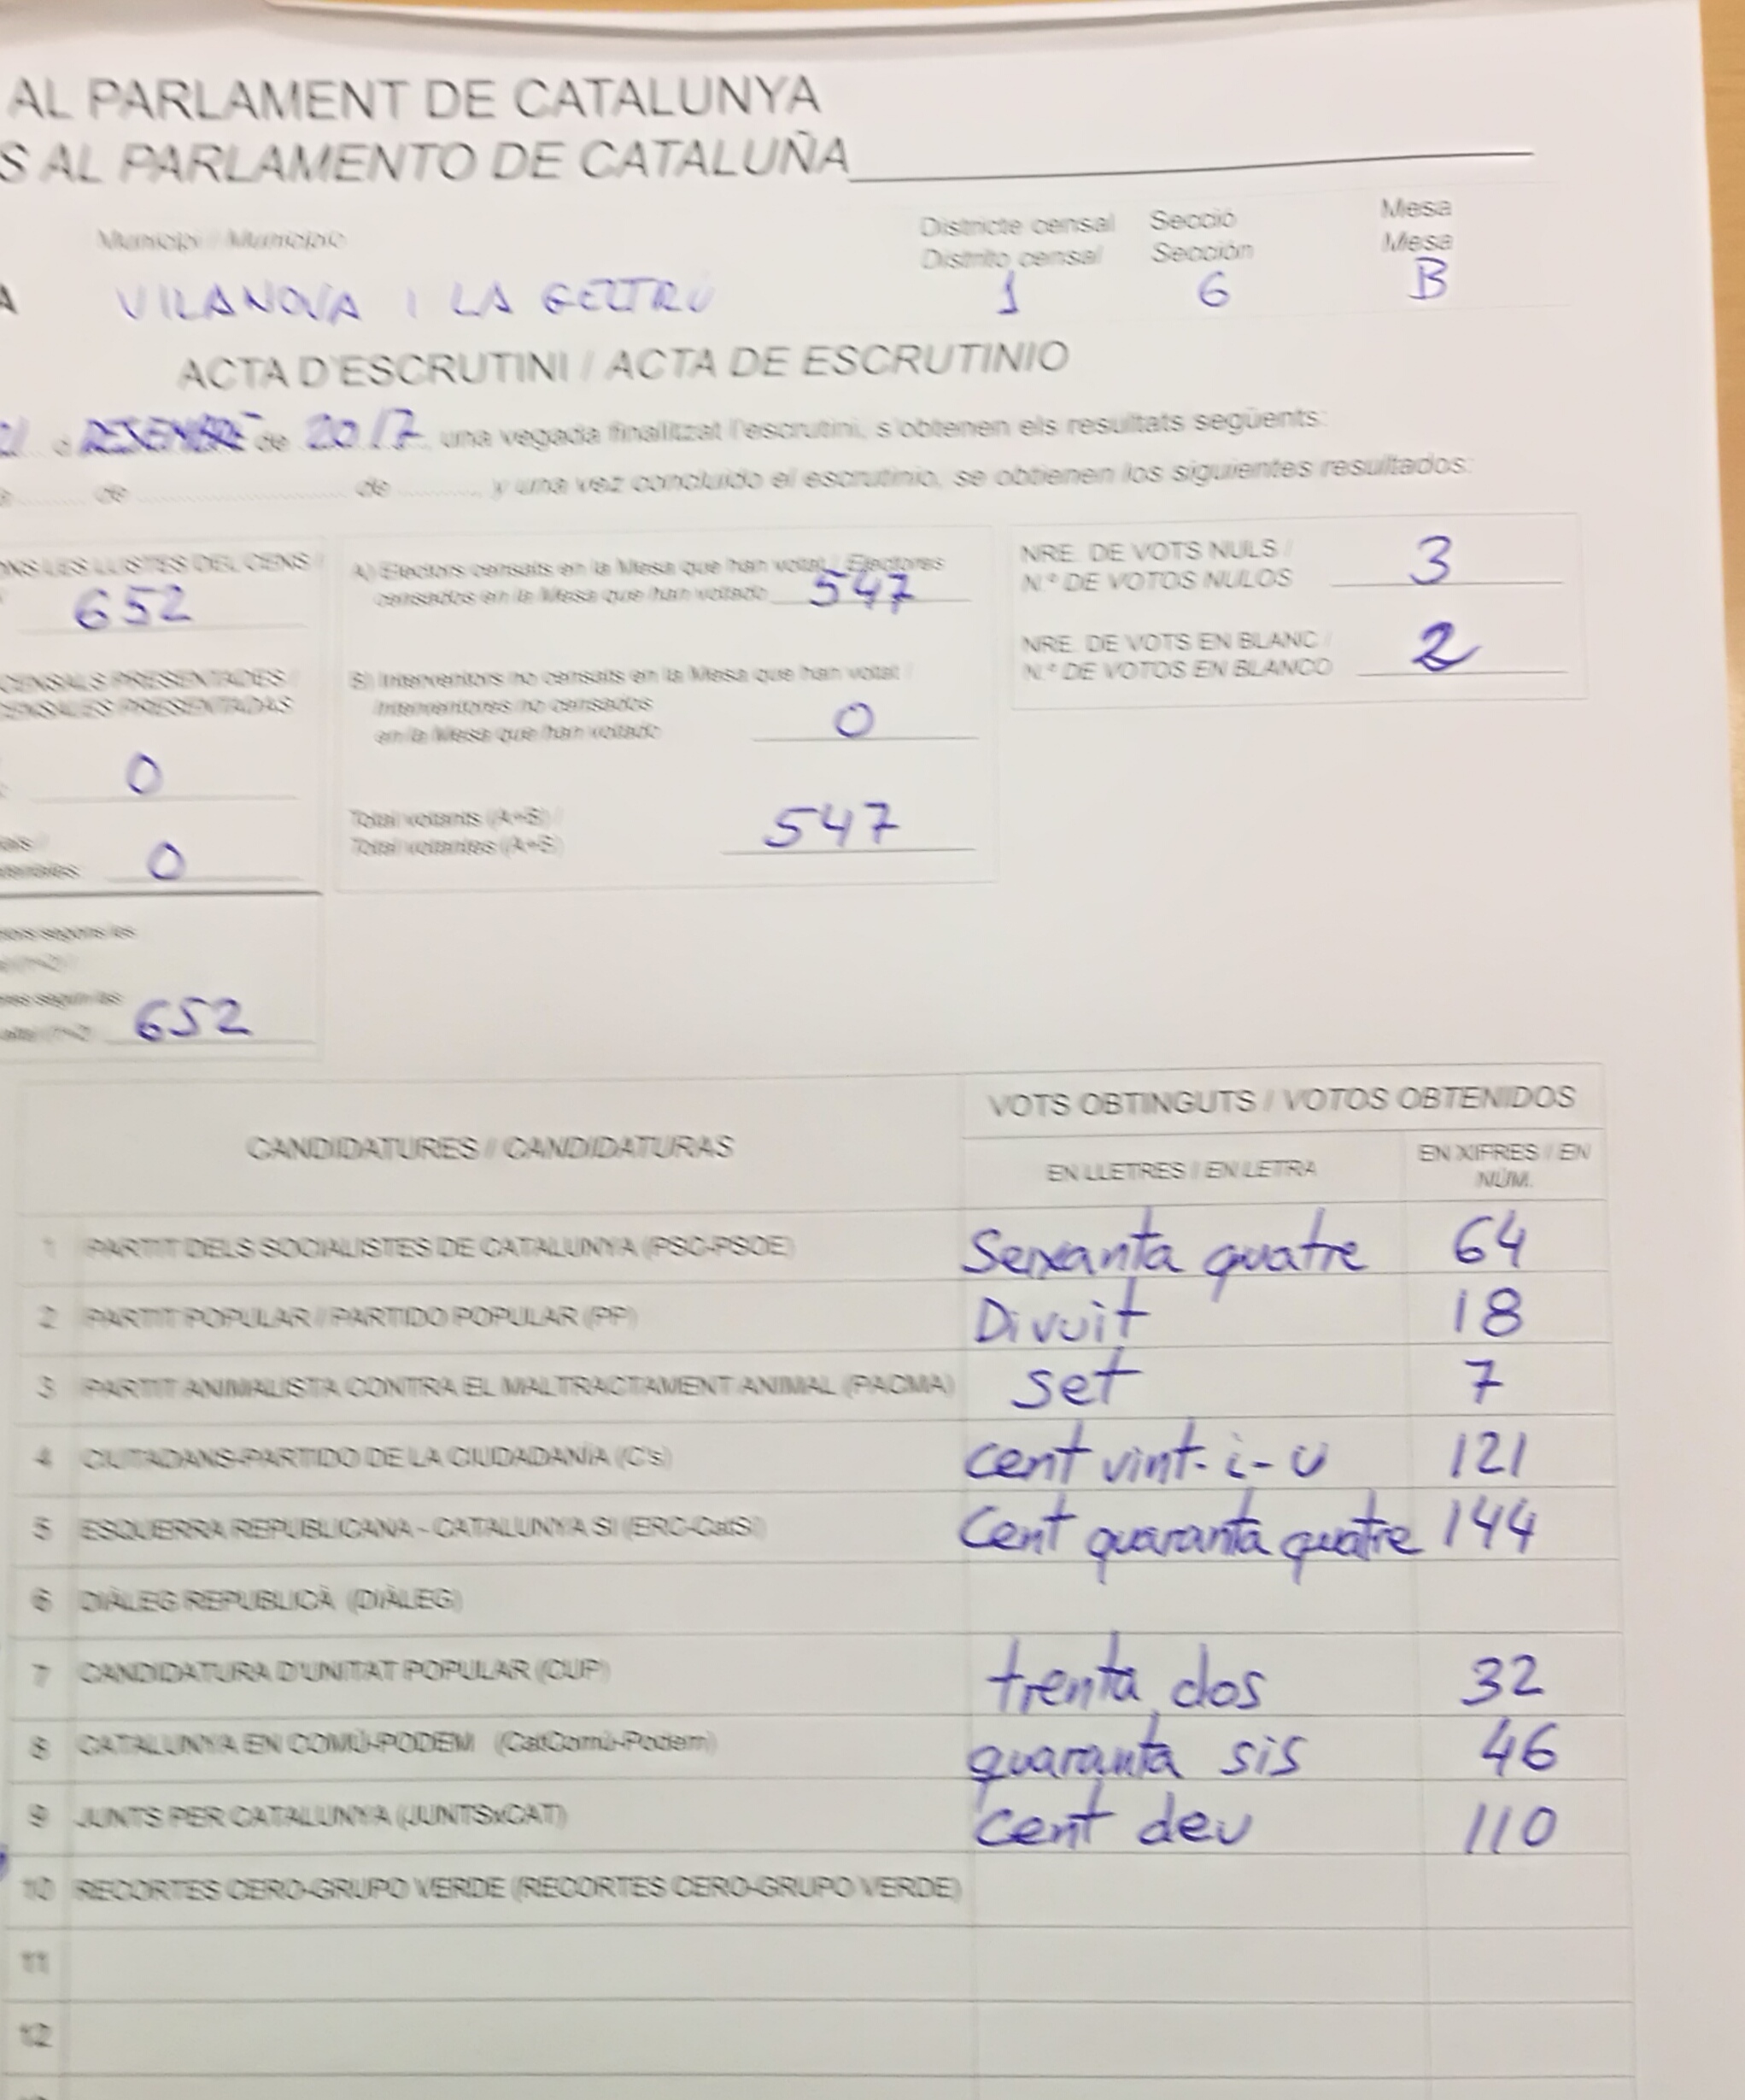 AL PARLAMENT DE CATALUNYA
S AL PARLAMENTO DE CATALUÑA
Municipi / Municipio
Districte censal
Distrito censal
Secció
Sección
Mesa
Mesa
A VILANOVA I LA GELTRÚ 1 6 B
ACTA D'ESCRUTINI / ACTA DE ESCRUTINIO
21 DESEMBRE de 2017, una vegada finalitzat l'escrutini, s'obtenen els resultats següents:
de de , y una vez concluido el escrutinio, se obtienen los siguientes resultados:
LES LLISTES DEL CENS /
652
CENSALS PRESENTADES /
CENSALES PRESENTADAS
0
0
652
A) Electors censats en la Mesa que han votat / Electores
censados en la Mesa que han votado 547
Interventors no censats en la Mesa que han votat /
Interventores no censados
en la Mesa que han votado 0
Total votants
Total votantes 547
NRE. DE VOTS NULS /
N.º DE VOTOS NULOS 3
NRE. DE VOTS EN BLANC /
N.º DE VOTOS EN BLANCO 2
CANDIDATURES / CANDIDATURAS
VOTS OBTINGUTS / VOTOS OBTENIDOS
EN LLETRES / EN LETRA
EN XIFRES / EN
NÚM.
1 PARTIT DELS SOCIALISTES DE CATALUNYA (PSC-PSOE) Seixanta quatre 64
2 PARTIT POPULAR / PARTIDO POPULAR (PP) Divuit 18
3 PARTIT ANIMALISTA CONTRA EL MALTRACTAMENT ANIMAL (PACMA) set 7
4 CIUTADANS-PARTIDO DE LA CIUDADANÍA (C's) cent vint-i-u 121
5 ESQUERRA REPUBLICANA - CATALUNYA SÍ (ERC-CatSí) Cent quaranta quatre 144
6 DIÀLEG REPUBLICÀ (DIÀLEG)
7 CANDIDATURA D'UNITAT POPULAR (CUP) trenta dos 32
8 CATALUNYA EN COMÚ-PODEM (CatComú-Podem) quaranta sis 46
9 JUNTS PER CATALUNYA (JUNTSxCAT) cent deu 110
10 RECORTES CERO-GRUPO VERDE (RECORTES CERO-GRUPO VERDE)
11
12